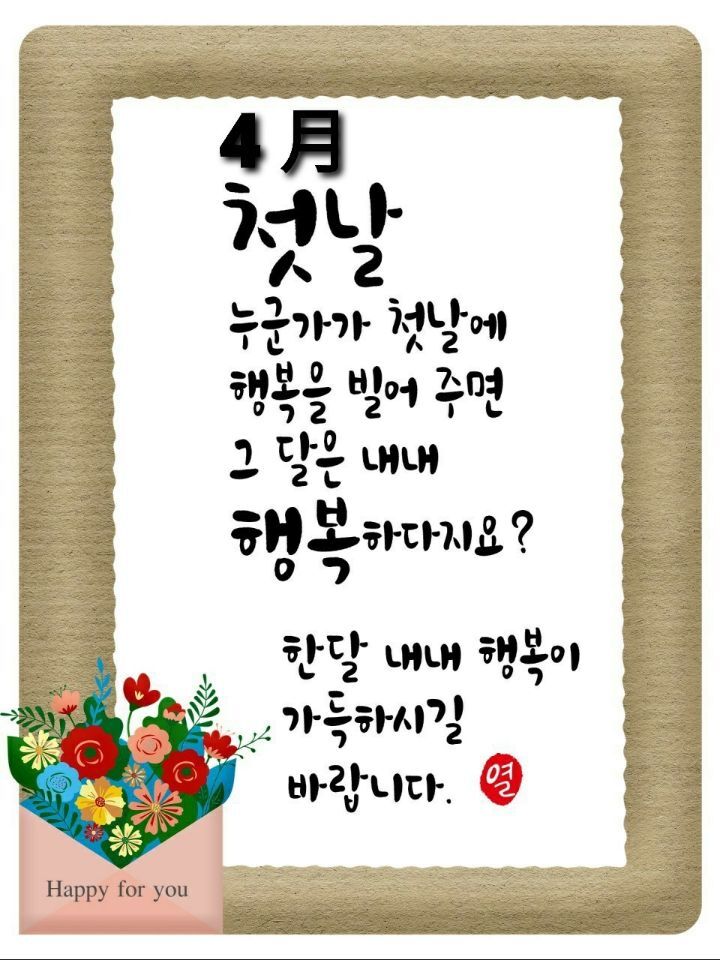 4 月
첫날
누군가가 첫날에
행복을 빌어 주면
그 달은 내내
행복하다지요?
한달 내내 행복이
가득하시길
바랍니다.
열
Happy for you